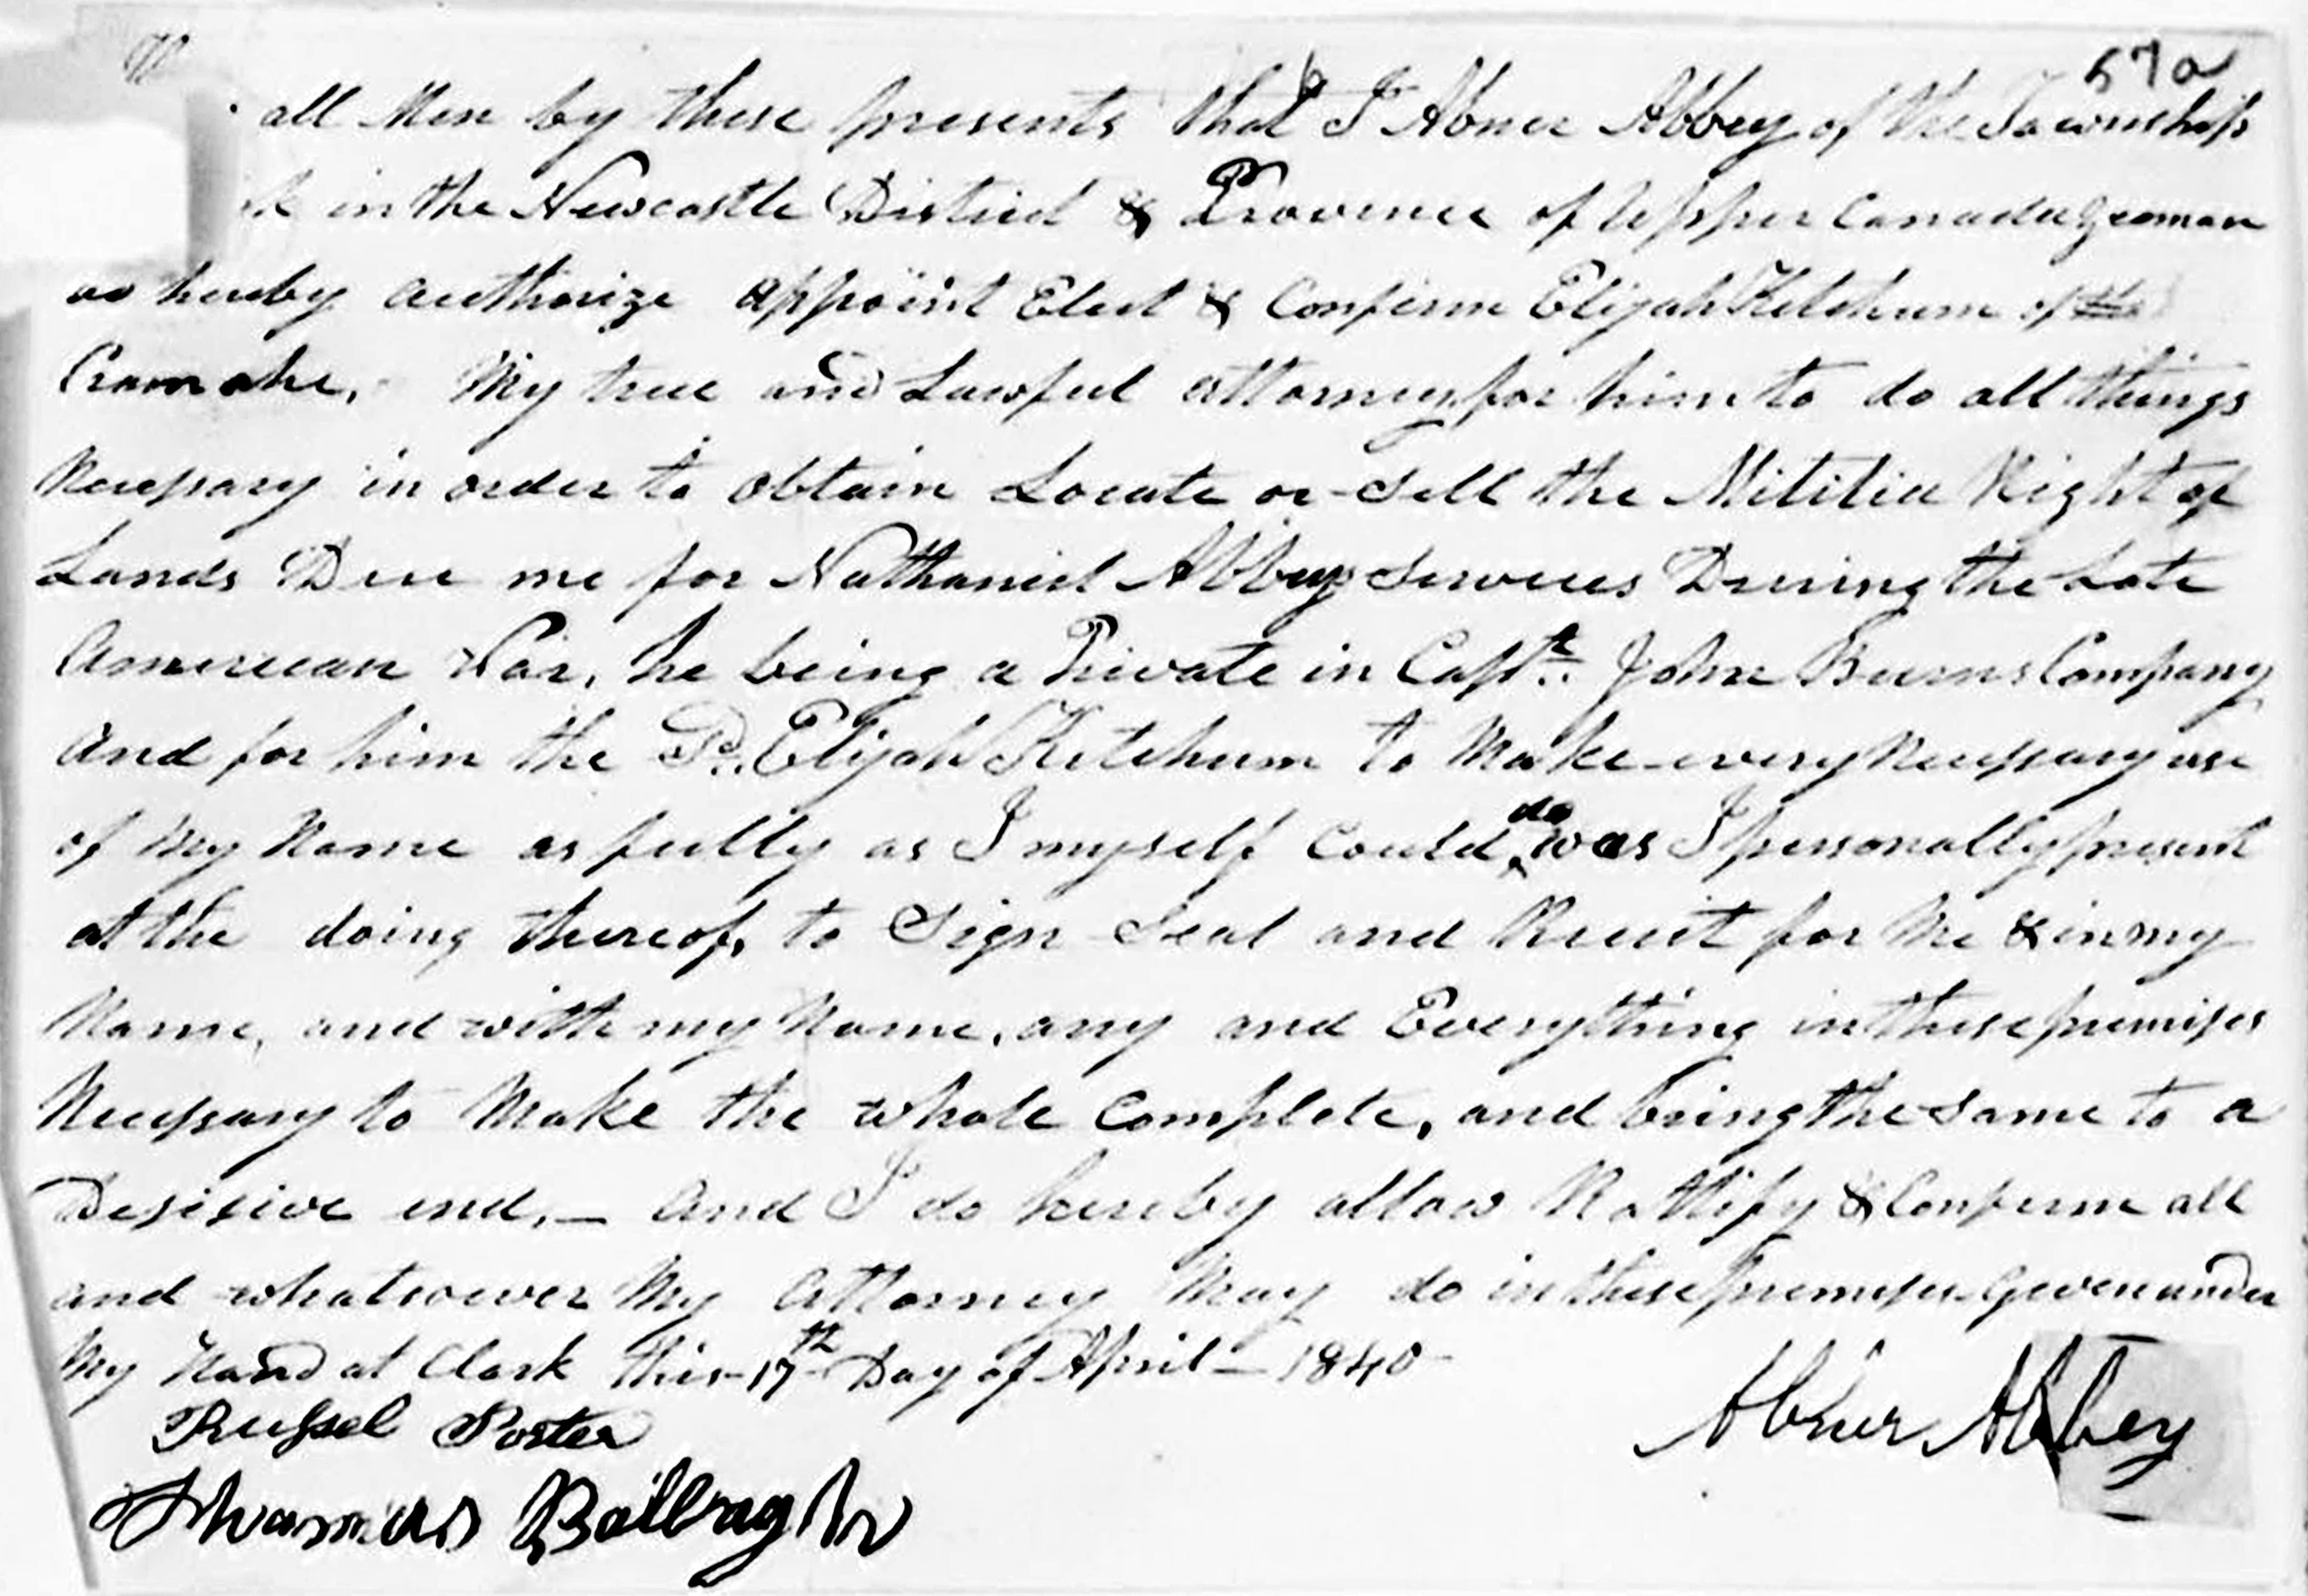 57a
all Men by these presents that I Abner Abbey of the Township
in the Newcastle District & Province of Upper Canada yeoman
do hereby authorize appoint Elect & Confirm Elijah Ketchum of the
Cramahe, My true and Lawful attorney for him to do all things
Necessary in order to obtain Locate or Sell the Mititia Right of
Lands Due me for Nathaniel Abbeys Services During the Late
American War, he being a Private in Capt. John Burns Company
And for him the Sd. Elijah Ketchum to Make every Necessary use
of My Name as fully as I myself Could do was I personally present
at the doing thereof, to Sign Seal and Receit for Me & in my
Name, and with my Name, any and Everything in these premises
Necessary to Make the whole Complete, and bring the Same to a
Desisive end, — And I do hereby allow Rattify & Confirm all
and whatsoever My Attorney May do in these premises Given under
My Hand at Clark this 17th Day of April — 1840
Russel Porter
Abner Abbey